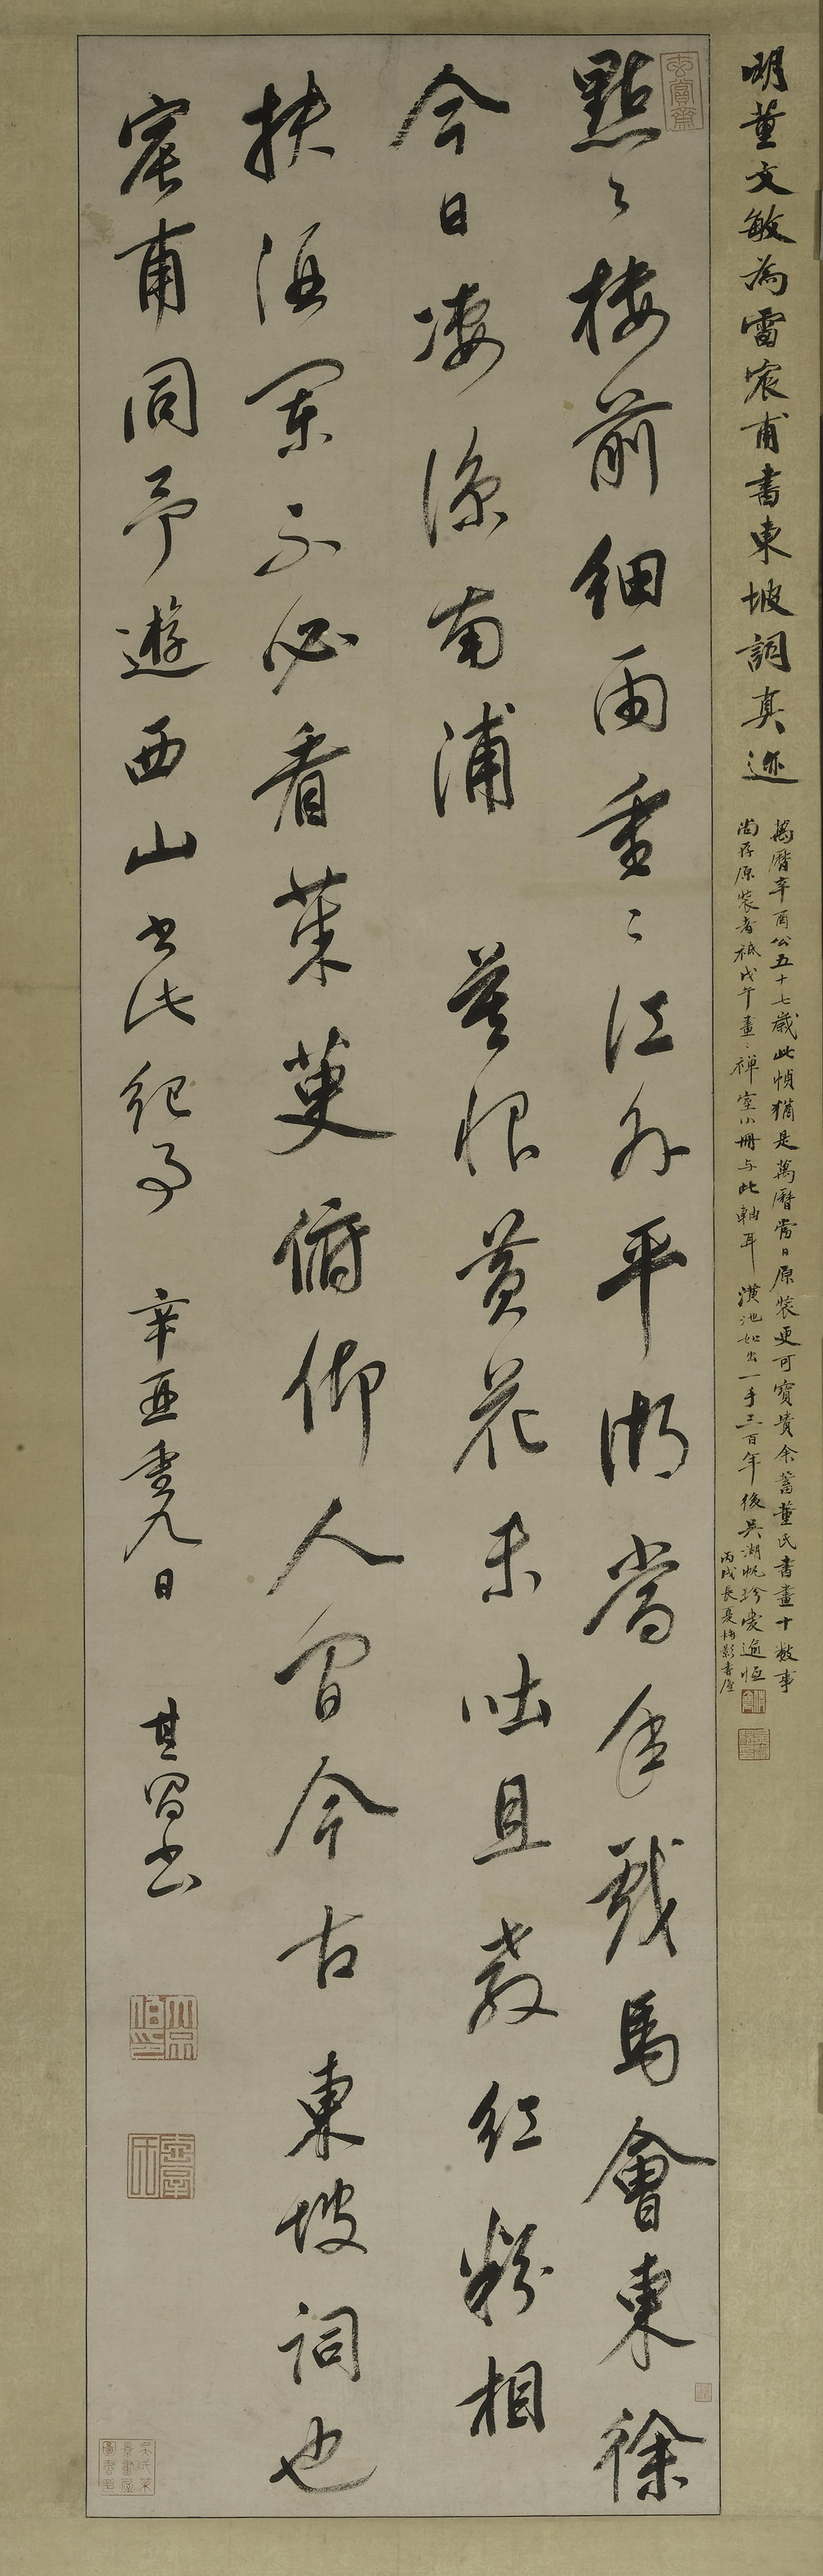 明董文敏為雷宸甫書東坡詞真迹
萬曆辛酉公五十七歲此幀猶是萬曆當日原裝更可寶貴余蓄董氏書畫十數事
尚存原裝者祇戊午畫〻禪室小冊与此軸耳 潢池如出一手三百年後吳湖帆珍愛逾恒
丙戌長夏梅影書屋
玄賞齋
點〻樓前細雨重〻江外平湖當年戲馬會東徐
今日凄涼南浦 莫恨黃花未吐且教紅粉相
扶酒闌不必看茱萸俯仰人間今古 東坡詞也
宸甫同予遊西山書此紀事 辛亥重九日 其昌書
大宗伯印